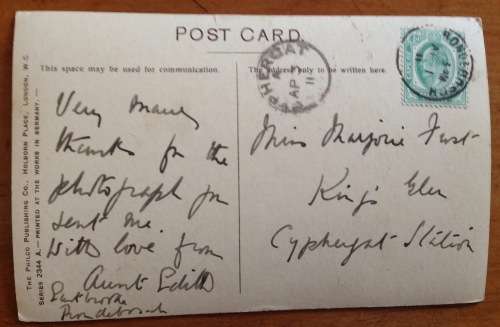 POST CARD.
This space may be used for communication.
The address only to be written here.
THE PHILCO PUBLISHING CO., HOLBORN PLACE, LONDON, W.C.
SERIES 2344 A.—PRINTED AT THE WORKS IN GERMANY.—
CYPHERGAT
AP
11
Very many
thanks for the
photograph you
sent me.
With love from
Aunt Edith
Rondebosch
Miss Marjorie
King's Glen
Cyphergat Station